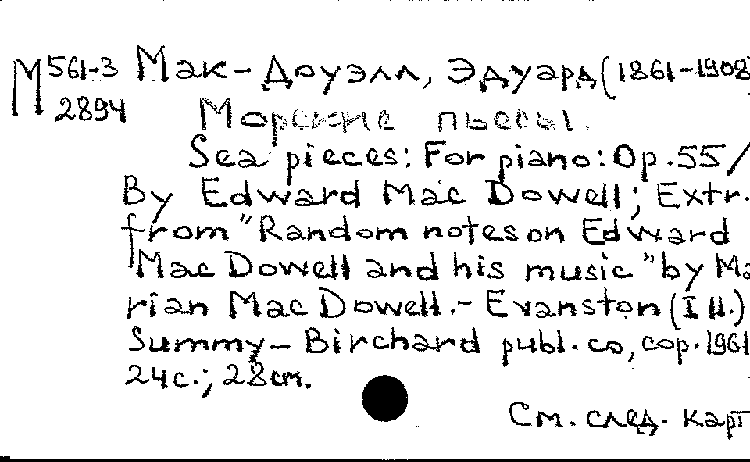 М 561-3 Мак-Доуэлл, Эдуард (1861-1908)
2894 Морские пьесы.
Sea pieces: For piano: Op. 55/
By Edward Mac Dowell; Extr.
from "Random notes on Edward
Mac Dowell and his music" by Ma
rian Mac Dowell.- Evanston (Ill.)
Summy-Birchard publ. co, cop. 1961
24 с.; 28 cm.
См. след. карт